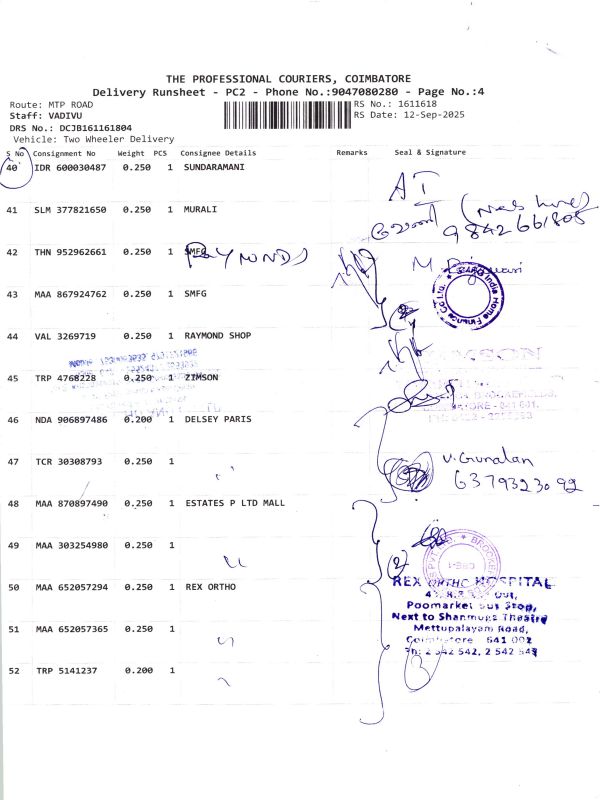 THE PROFESSIONAL COURIERS, COIMBATORE
Delivery Runsheet - PC2 - Phone No.:9047080280 - Page No.:4
Route: MTP ROAD
Staff: VADIVU
DRS No.: DCJB161161804
Vehicle: Two Wheeler Delivery
RS No.: 1611618
RS Date: 12-Sep-2025
S No Consignment No Weight PCS Consignee Details Remarks Seal & Signature
40 IDR 600030487 0.250 1 SUNDARAMANI
41 SLM 377821650 0.250 1 MURALI
9842661808
42 THN 952962661 0.250 1 SMFG
RAYMONDS
43 MAA 867924762 0.250 1 SMFG
India Home Finance Co Ltd.
44 VAL 3269719 0.250 1 RAYMOND SHOP
45 TRP 4768228 0.250 1 ZIMSON
46 NDA 906897486 0.200 1 DELSEY PARIS
47 TCR 30308793 0.250 1
V. Gunalan
6379323092
48 MAA 870897490 0.250 1 ESTATES P LTD MALL
49 MAA 303254980 0.250 1
(2)
50 MAA 652057294 0.250 1 REX ORTHO
REX ORTHO HOSPITAL
Poomarket Bus Stop,
Next to Shanmuga Theatre
Mettupalayam Road,
Coimbatore - 641 002
51 MAA 652057365 0.250 1
52 TRP 5141237 0.200 1